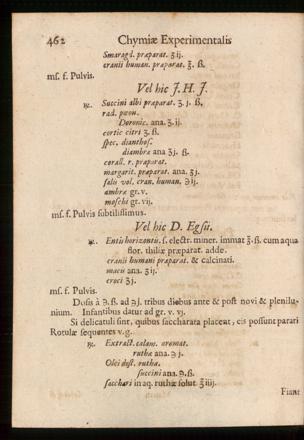 462 Chymiæ Experimentalis
Smaragd. præparat. ʒij.
cranii human. præparat. ʒ. ß.
mſ. f. Pulvis.
Vel hic J. H. J.
℞. Succini albi præparat. ʒ. j. ß,
rad. pæon.
Doronic. ana. ʒ. ij.
cortic citri ʒ. ß.
ſpec. dianthoſ.
diambræ ana ʒj. ß.
corall. r. præparat.
margarit. præparat. ana. ʒj.
ſalis vol. cran. human. ℈ij.
ambræ gr. v.
moſchi gr. vij.
mſ. f. Pulvis ſubtiliſſimus.
Vel hic D. Egſii.
℞. Entis horizontis. ſ. electr. miner. immat ʒ. ß. cum aqua
flor. thiliæ præparat. adde.
cranii humani præparat. & calcinati.
macis ana. ʒij.
croci ʒj.
mſ. f. Pulvis.
Doſis à ℈. ß. ad ℈j. tribus diebus ante & poſt novi & plenilu-
nium. Infantibus datur ad gr. v. vj.
Si delicatuli ſint, quibus ſaccharata placeat, eis poſſunt parari
Rotulæ ſequentes v. g.
℞. Extract. calam. aromat.
ruthæ ana. ℈ j.
Olei deſt. ruthæ.
ſuccini ana. ℈. ß.
ſacchari in aq. ruthæ ſolut. ʒiij.
Fiant